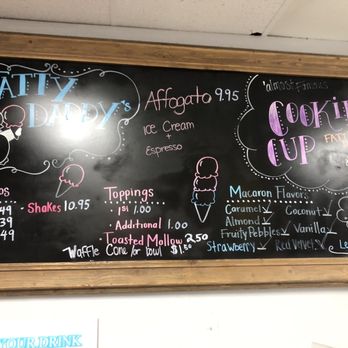 ATTY
DADDY's
Affogato 9.95
ICE Cream
+
Espresso
'almost Famous
COOKIE
CUP
FATT
PS
49
39
49
- Shakes 10.95
Toppings
1st 1.00
• Additional 1.00
• Toasted Mallow 2.50
Waffle Cone/or bowl $1.50
Macaron Flavors
Caramel
Coconut
Almond
Fruity Pebbles
Vanilla
Strawberry
Red Velvet
Le
YOUR DRINK